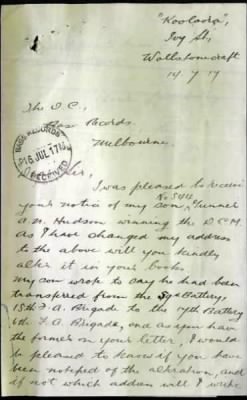 "Koolaora",
Ivy St,
Wollstonecraft
14/7/17
The O.C.,
Base Records
Melbourne
BASE RECORDS
16 JUL 1917
RECEIVED
Sir,
I was pleased to receive
your notice of my son, No 5412 Gunner
A. N. Hudson winning the D.C.M.
As I have changed my address
to the above will you kindly
alter it in your books
My son wrote to say he had been
transferred from the Battery,
15th F.A. Brigade to the 17th Battery
6th F.A. Brigade, and as you have
the former on your letter, I would
be pleased to know if you have
been notified of the alteration, and
if not which address will I write